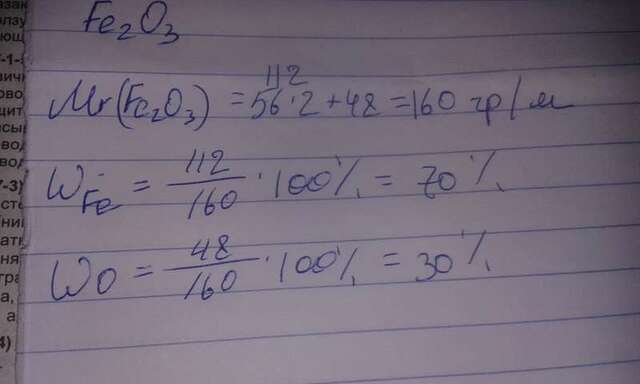 Fe₂O₃
112
Mr(Fe₂O₃) = 56·2+48 = 160 гр/м
W Fe = 112/160 · 100% = 70%
WO = 48/160 · 100% = 30%